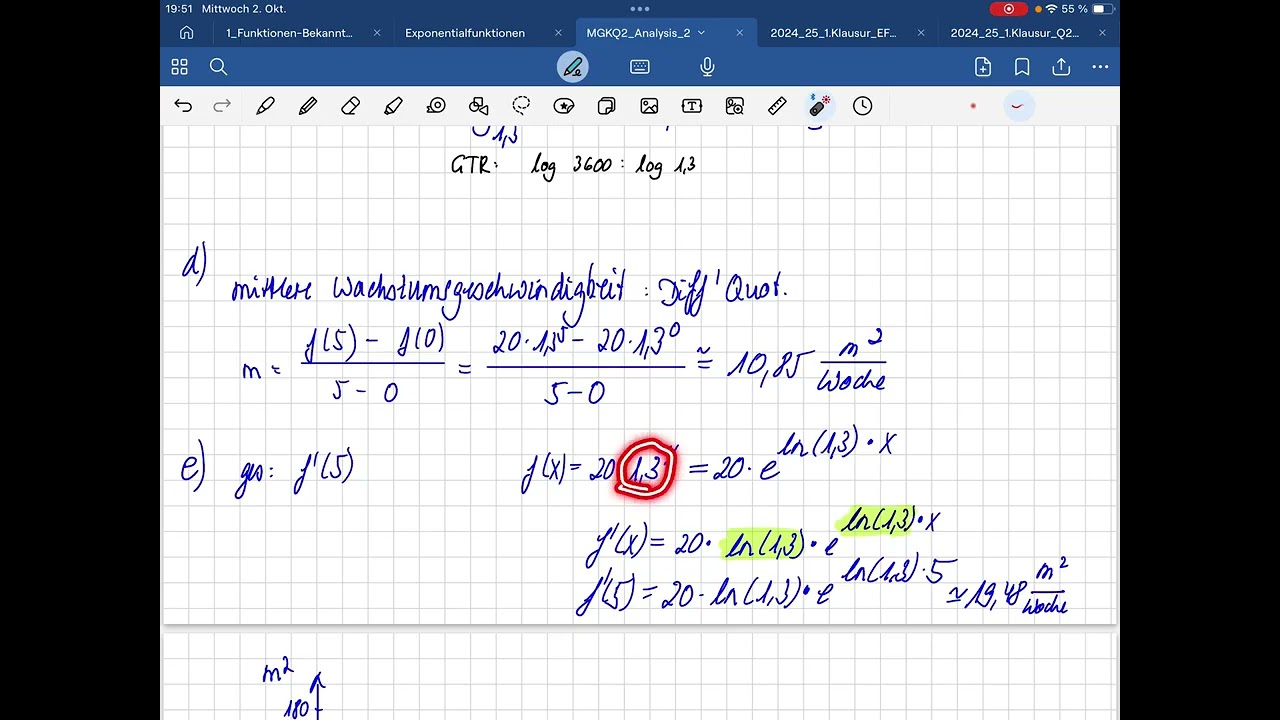 19:51 Mittwoch 2. Okt. 55 %
1_Funktionen-Bekannt... Exponentialfunktionen MGKQ2_Analysis_2 2024_25_1.Klausur_EF... 2024_25_1.Klausur_Q2...
1,3
GTR: log 3600 : log 1,3
d)
mittlere Wachstumsgeschwindigkeit : Diff'Quot.
m = (f(5) - f(0))/(5 - 0) = (20·1,3⁵ - 20·1,3⁰)/(5-0) ≃ 10,85 m²/Woche
e) ges: f'(5) f(x) = 20 1,3ˣ = 20·e^(ln(1,3)·x)
f'(x) = 20·ln(1,3)·e^(ln(1,3)·x)
f'(5) = 20·ln(1,3)·e^(ln(1,3)·5) ≃ 19,48 m²/Woche
m²
180